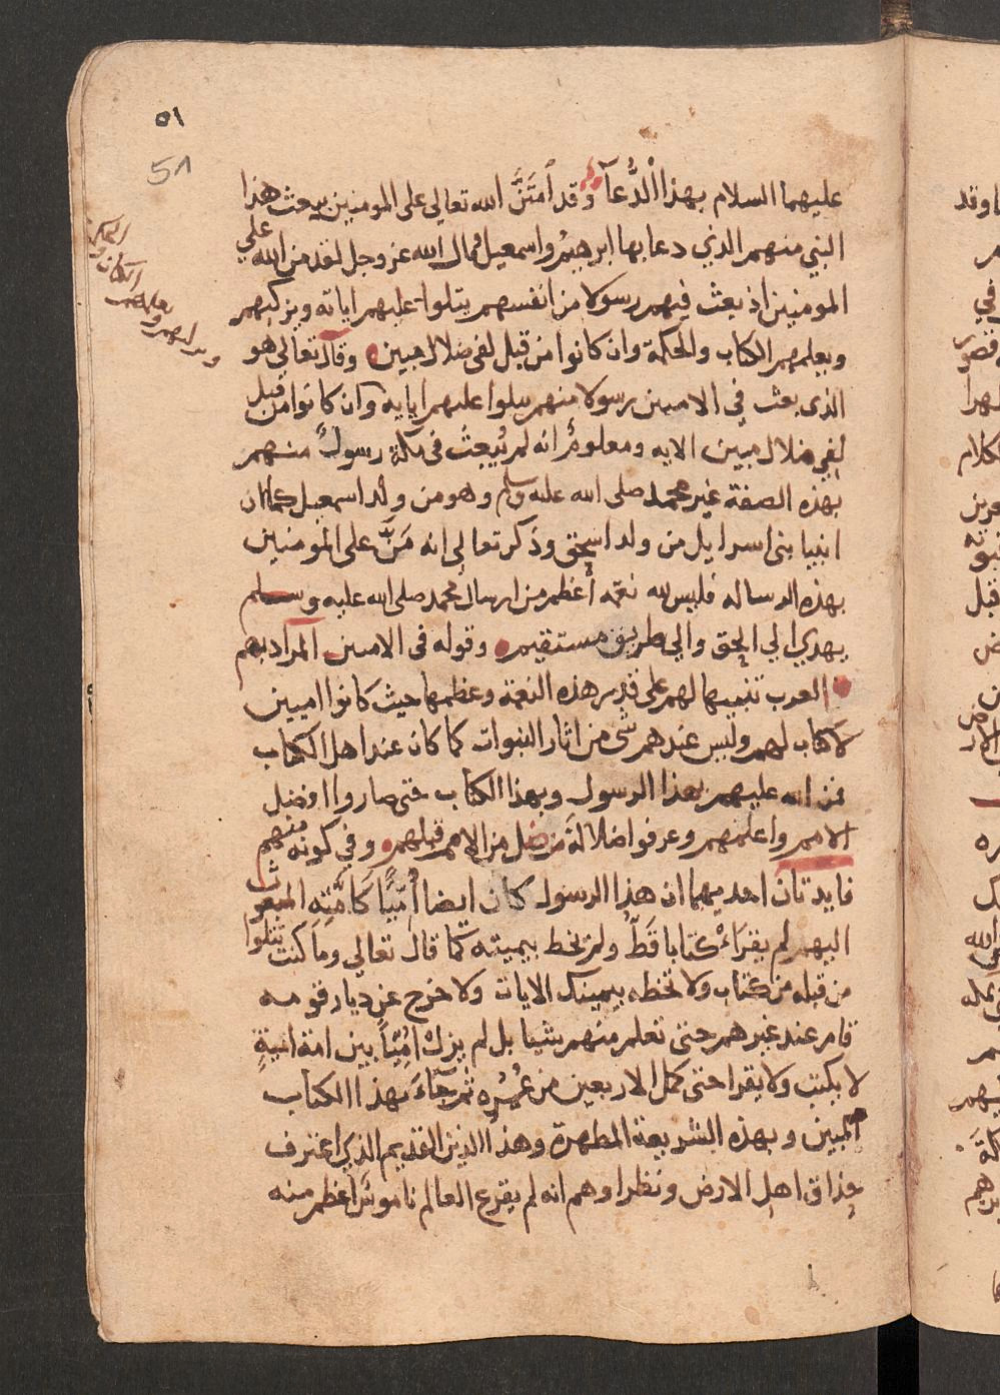 ٥١
51
عليهما السلام بهذا الدُّعآ وقد اَمتَنَّ الله تعالي على المومنين ببعث هذا
النبي منهم الذي دعا بها ابرهيم واسمعيل فقال الله عز وجل لقد من الله علي
المومنين اذ بعث فيهم رسولا من انفسهم يتلوا عليهم اياته ويزكيهم
ويعلمهم الكتاب والحكمة وان كانوا من قبل لفى ضلال مبين وقال تعالى هو
الذى بعث في الاميين رسولا منهم يتلوا عليهم اياته وان كانوا من قبل
لفي ضلال مبين الايه ومعلومٌ انه لم يُبعث فى مكة رسولٌ منهم
بهذه الصفة غير محمد صلى الله عليه وسلم وهو من ولد اسمعيل كما ان
انبيا بنى اسرايل من ولد اسحق وذكر تعالى انه مَنَّ على المومنين
بهذه الرساله فليس لله نعمه أعظم من ارسال محمد صلى الله عليه وسلم
يهدي الي الحق والي طريق مستقيم وقوله فى الاميين المراد بهم
العرب تنبيها لهم على قدر هذه النعمة وعظمها حيث كانوا اميين
لا كتاب لهم وليس عندهم شى من اثار النبوات كما كان عند اهل الكتاب
فمن الله عليهم بهذا الرسول وبهذا الكتاب حتى صاروا افضل
الامم واعلمهم وعرفوا ضلالة من ضل من الامم قبلهم وفي كونه منهم
فايدتان احديهما ان هذا الرسول كان ايضا أُمّيًّا كَأُمَّتِهِ المبعوث
اليهم لم يقرَاءْ كتابا قَطّ ولم يخط بيمينه كما قال تعالي وما كنت تتلوا
من قبله من كتاب ولا تخطه بيمينك الايات ولا خرج عن ديار قومه
فاقام عند غيرهم حتى تعلم منهم شيا بل لم يزل اُمّيًّا بين امة امية
لا يكتب ولا يقرا حتى كمل الاربعين من عُمُرِه ثم جَآءَ بهذا الكتاب
المبين وبهذه الشريعة المطهرة وهذا الدين القديم الذي اعترف
حذاق اهل الارض ونظراوهم انه لم يقرع العالم ناموسٌ اعظم منه